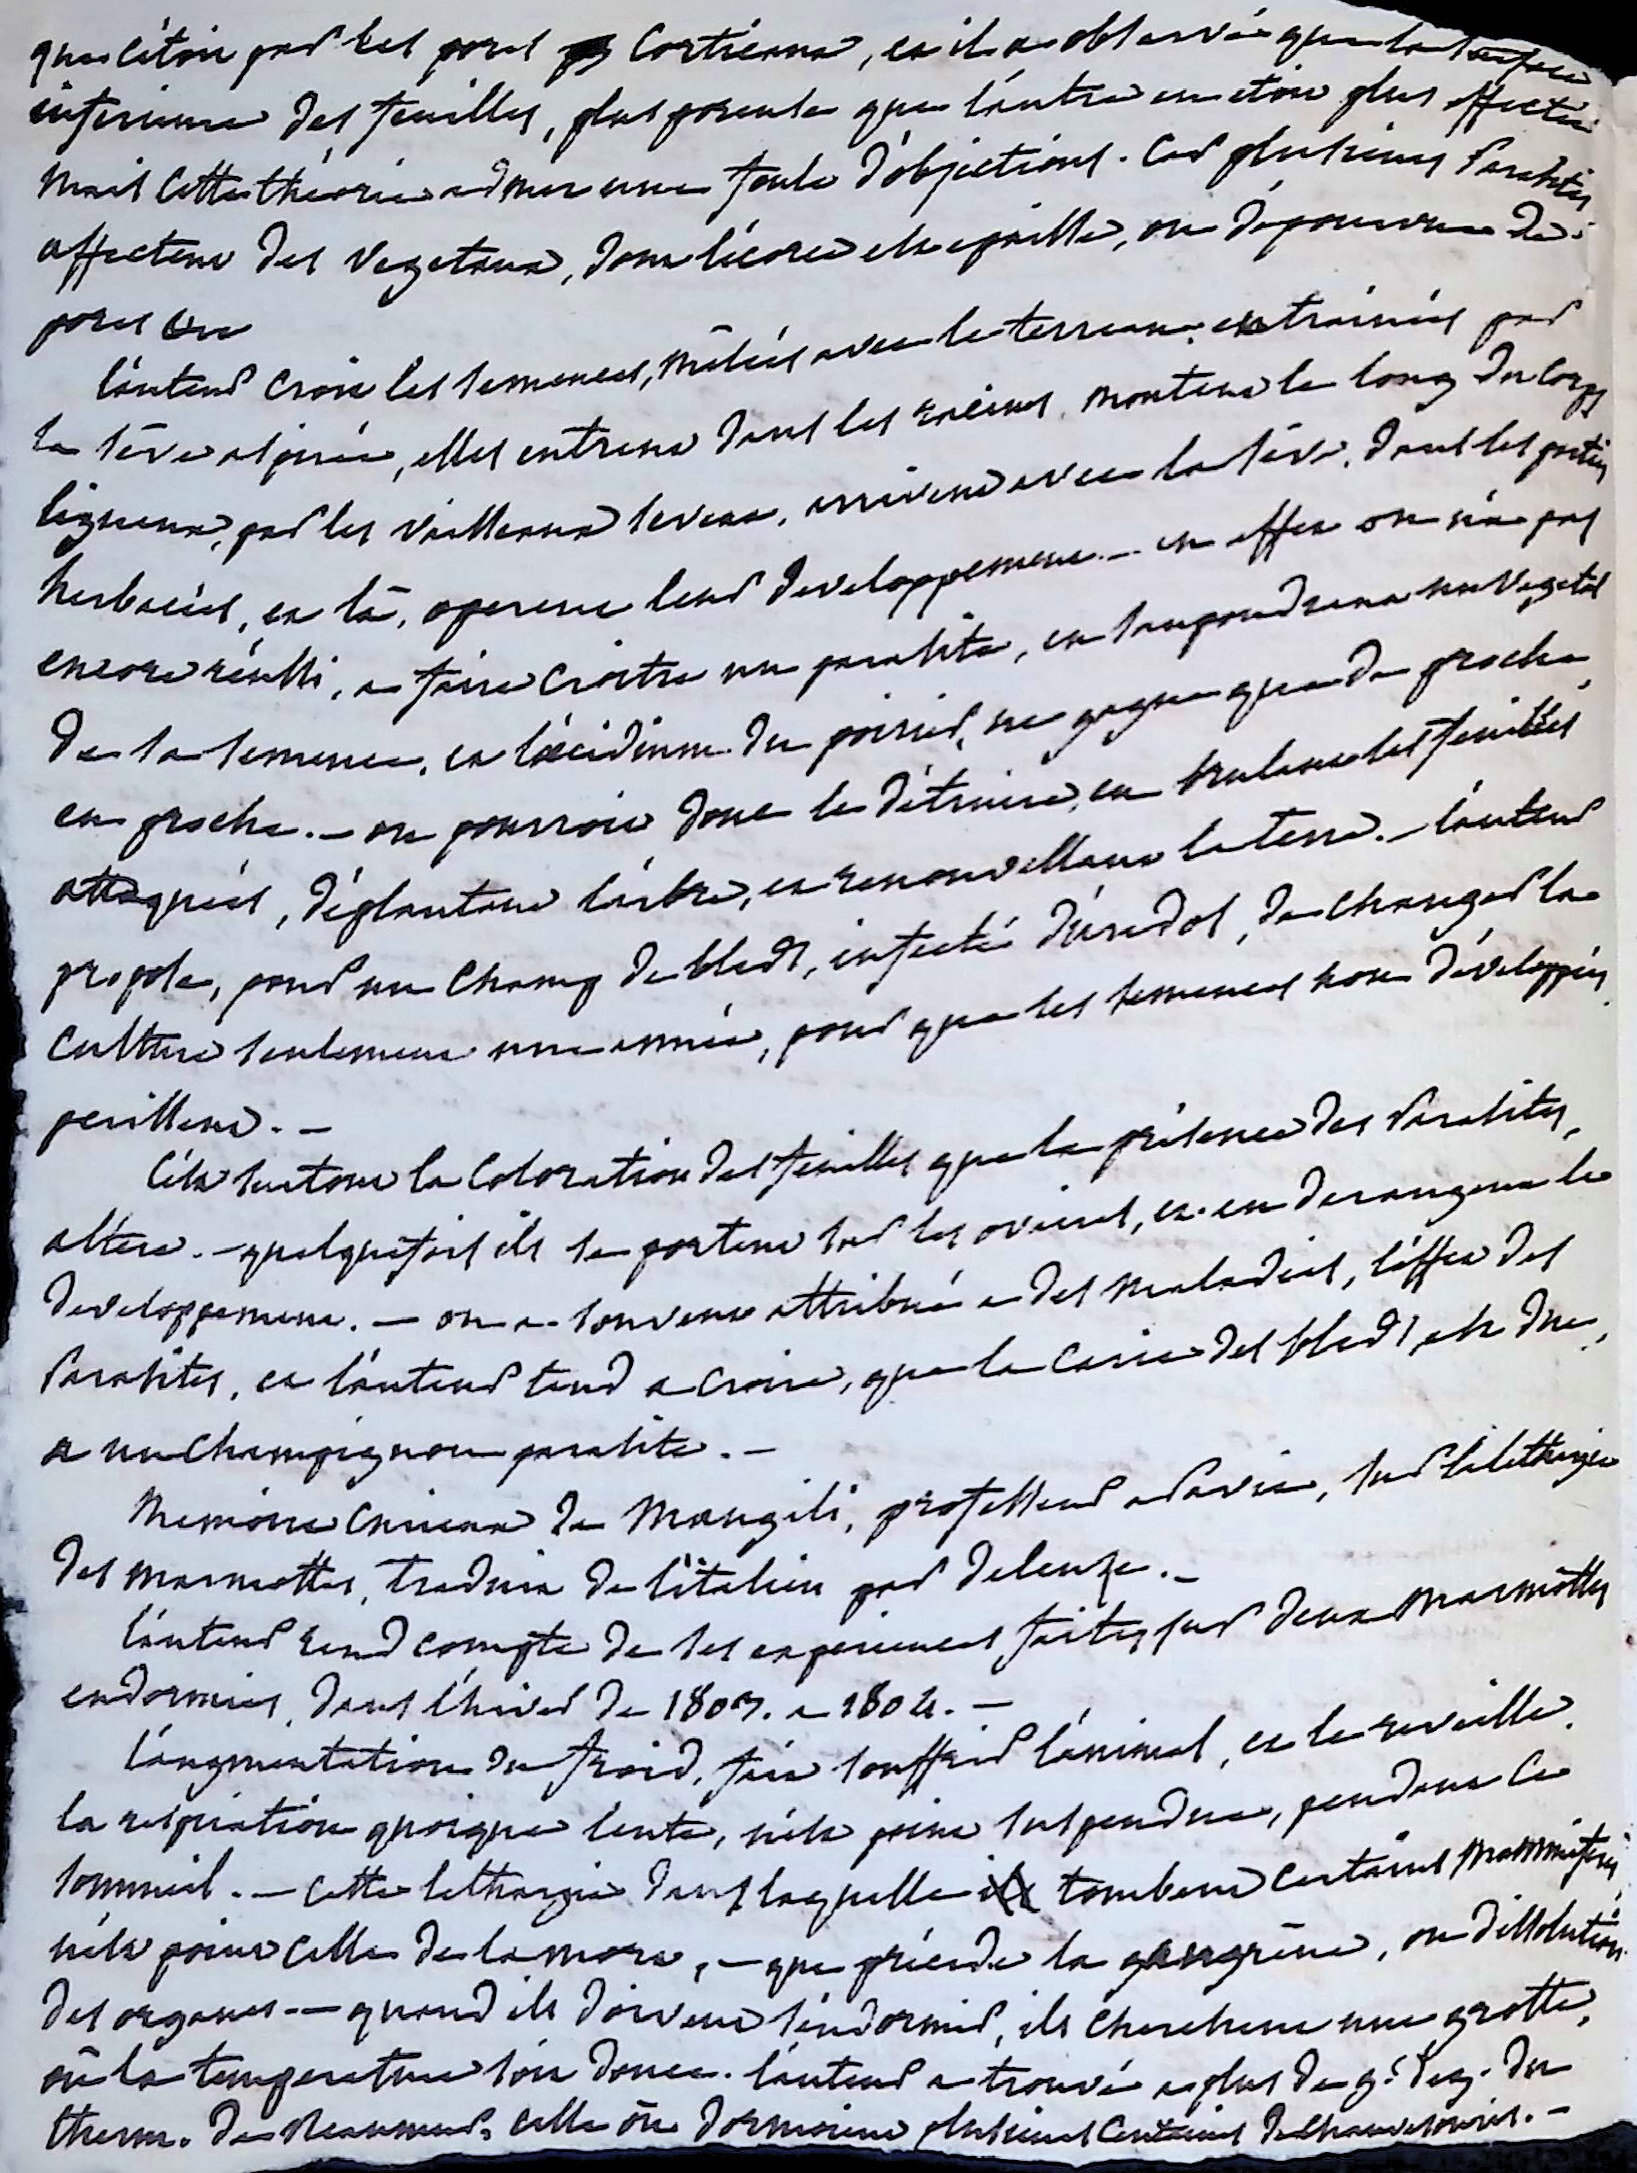 que c'étoit par les pores corticaux, et il a observé que la surface
inferieure des feuilles, plus poreuse que l'autre en étoit plus affectée
mais cette théorie admet une foule d'objections. Car plusieurs Parasites
affectent des vegetaux, dont l'écorce est epaisse, ou dépourvue de
pores
l'auteur croit les semences, mêlées avec le terreau. entrainées par
la sève aspirée, elles entrent dans les racines. montent le long du corps
ligneux, par les vaisseaux seveux, arrivent avec la sève, dans les parties
herbacées, et là, operent leur developpement. — en effet on n'a pas
encore réussi, a faire croitre un parasite, en saupoudrant un vegetal
de sa semence, et l'æcidium du poirier, ne gagne que de proche
en proche. — on pourroit donc le détruire, en brulant les feuilles
attaquées, déplantant l'arbre, et renouvellant la terre. — l'auteur
propose, pour un champ de bleds, infecté d'uredos, de changer la
culture seulement une année, pour que les semences non développées
perissent. —
C'est surtout la coloration des feuilles que la présence des Parasites,
altere. — quelquefois ils se portent sur les ovaires, et en derangent le
developpement. — on a souvent attribué a des maladies, l'effet des
Parasites, et l'auteur tend a croire, que la carie des bleds est due,
a un champignon parasite. —
Memoire curieux de Mangili, professeur a Pavie, sur la lethargie
des marmottes, traduit de l'italien par Deleuze. —
L'auteur rend compte de ses experiences faites sur deux marmottes
endormies, dans l'hiver de 1803. a 1804. —
L'augmentation du froid, fait souffrir l'animal, et le reveille.
la respiration quoique lente, n'est point suspendue, pendant ce
sommeil. — cette lethargie dans laquelle tombent certains mammiferes
n'est point celle de la mort, — que précede la gangrène, ou dissolution
des organes — quand ils doivent s'endormir, ils cherchent une grotte,
où la temperature soit douce. l'auteur a trouvé a plus de 9. deg. du
therm. de Reaumur, celle où dormoient plusieurs centaines de chauvesouris. —